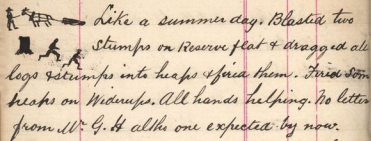 Like a summer day. Blasted two
Stumps on Reserve flat & dragged all
logs & stumps into heaps & fired them. Fired som
heaps on Widerups. All hands helping. No letter
from Mr. G. H altho one expected by now.